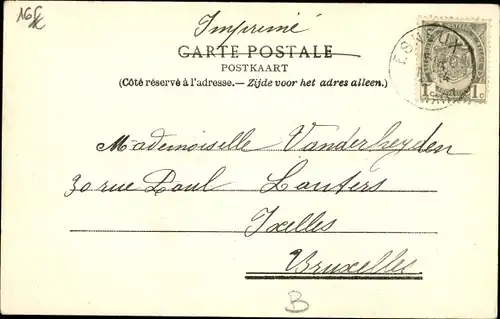 16 fc
Imprimé
CARTE POSTALE
POSTKAART
(Côté réservé à l'adresse.— Zijde voor het adres alleen.)
ESNEUX
1c 1c
Mademoiselle Vanderheyden
30 rue Paul Lauters
Ixelles
Bruxelles
B